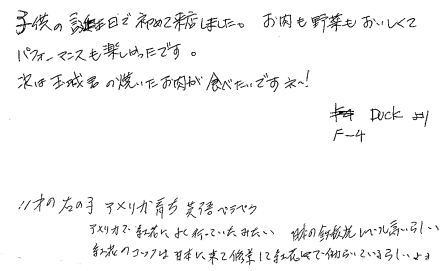 子供の誕生日で初めて来店しました。お肉も野菜もおいしくて
パフォーマンスも楽しかったです。
次は玉城君の焼いたお肉が食べたいですネ〜!
Duck #1
F-4
11才の女の子 アメリカ育ち 英語ペラペラ
アメリカで紅花によく行っていたみたい 日本の鉄板焼レベル高いらしい
紅花のコックは日本に来て修業して紅花で働らいているらしいよ